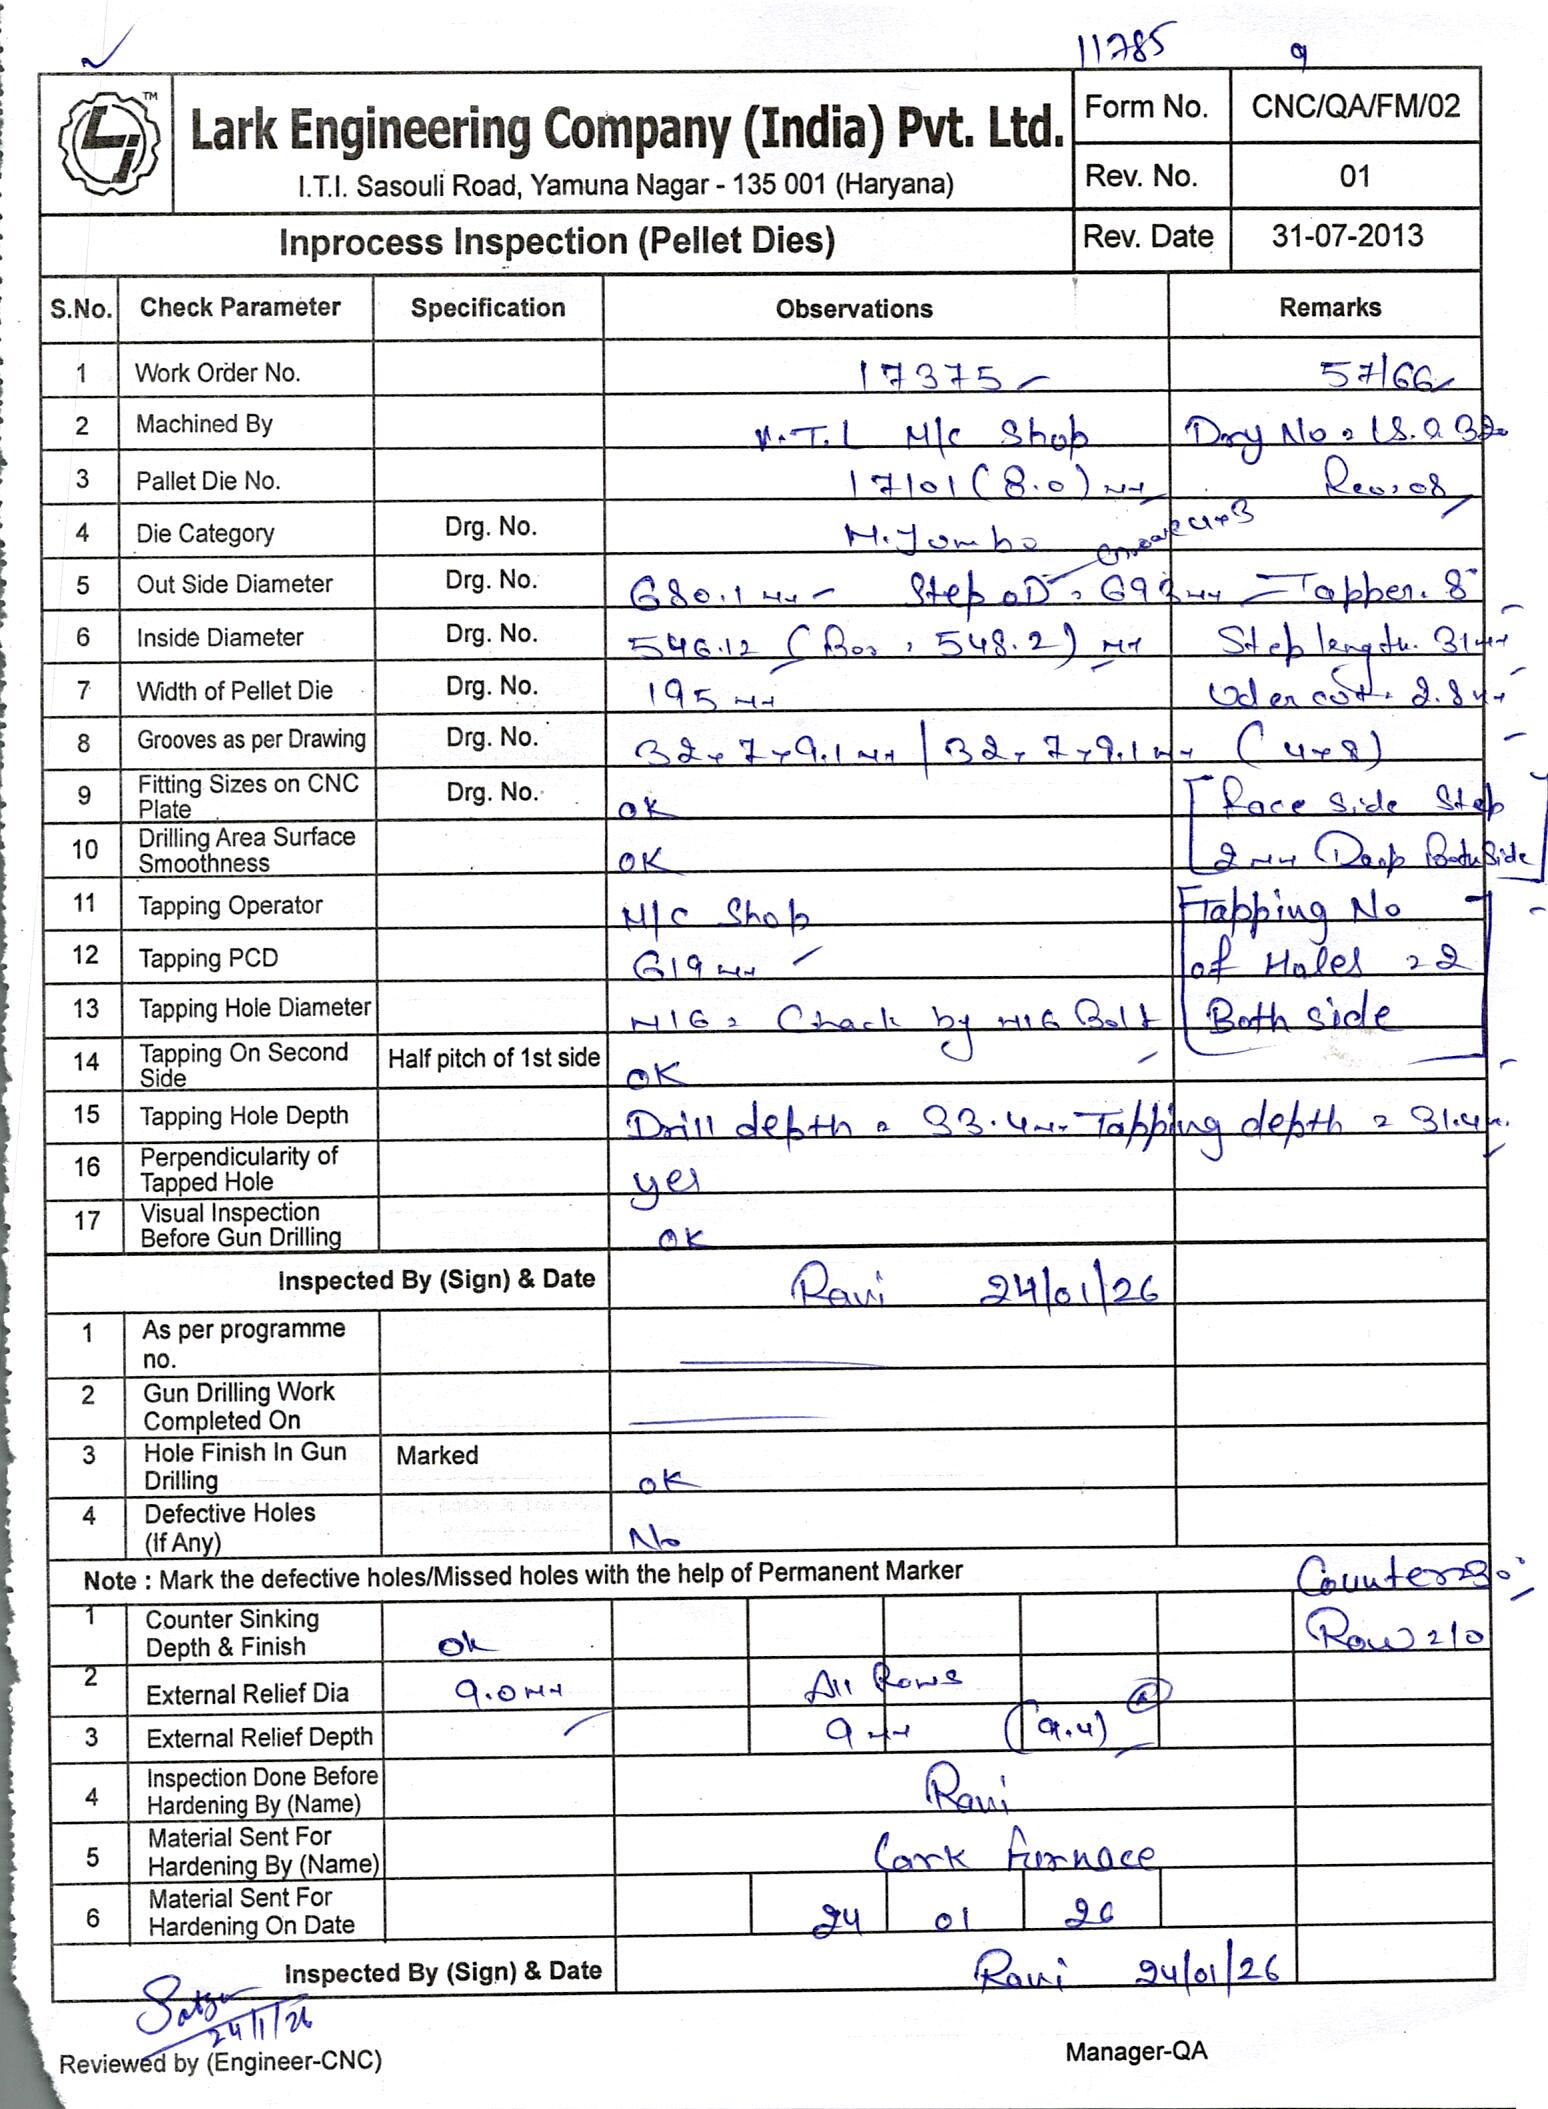 11785 9
TM
Lark Engineering Company (India) Pvt. Ltd.
I.T.I. Sasouli Road, Yamuna Nagar - 135 001 (Haryana)
Form No. CNC/QA/FM/02
Rev. No. 01
Inprocess Inspection (Pellet Dies)
Rev. Date 31-07-2013
S.No. Check Parameter Specification Observations Remarks
1 Work Order No. 17375 57/66
2 Machined By M/c Shop
3 Pallet Die No. 17101 (8.0) mm
4 Die Category Drg. No. M. Jombo 4x3
5 Out Side Diameter Drg. No. 680.1 mm Step OD = mm Tapper. 8°
6 Inside Diameter Drg. No. 546.12 ( 548.2) mm Step length. 31mm
7 Width of Pellet Die Drg. No. 195 mm Uder cot. 2.8 mm
8 Grooves as per Drawing Drg. No. 32x7x9.1 mm | 32x7x9.1 mm (4x8)
9 Fitting Sizes on CNC Plate Drg. No. OK Face Side Step
10 Drilling Area Surface Smoothness OK 2 mm Deep Both Side
11 Tapping Operator M/C Shop Tapping No
12 Tapping PCD 619 mm of Holes = 2
13 Tapping Hole Diameter M16 = Chack by M16 Bolt Both side
14 Tapping On Second Side Half pitch of 1st side OK
15 Tapping Hole Depth Drill depth = 33.4mm Tapping depth = 31.4m.
16 Perpendicularity of Tapped Hole yes
17 Visual Inspection Before Gun Drilling OK
Inspected By (Sign) & Date Ravi 24/01/26
1 As per programme no.
2 Gun Drilling Work Completed On
3 Hole Finish In Gun Drilling Marked OK
4 Defective Holes (If Any) No
Note : Mark the defective holes/Missed holes with the help of Permanent Marker Counter
1 Counter Sinking Depth & Finish Ok Row 210
2 External Relief Dia 9.0mm All Rows
3 External Relief Depth 9 mm (9.4)
4 Inspection Done Before Hardening By (Name) Ravi
5 Material Sent For Hardening By (Name) Lark Furnace
6 Material Sent For Hardening On Date 24 01 26
Inspected By (Sign) & Date Ravi 24/01/26
24/1/26
Reviewed by (Engineer-CNC) Manager-QA